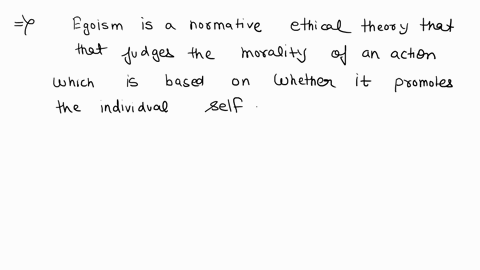 ⇒ Egoism is a normative ethical theory that
that judges the morality of an action
which is based on whether it promotes
the individual self.